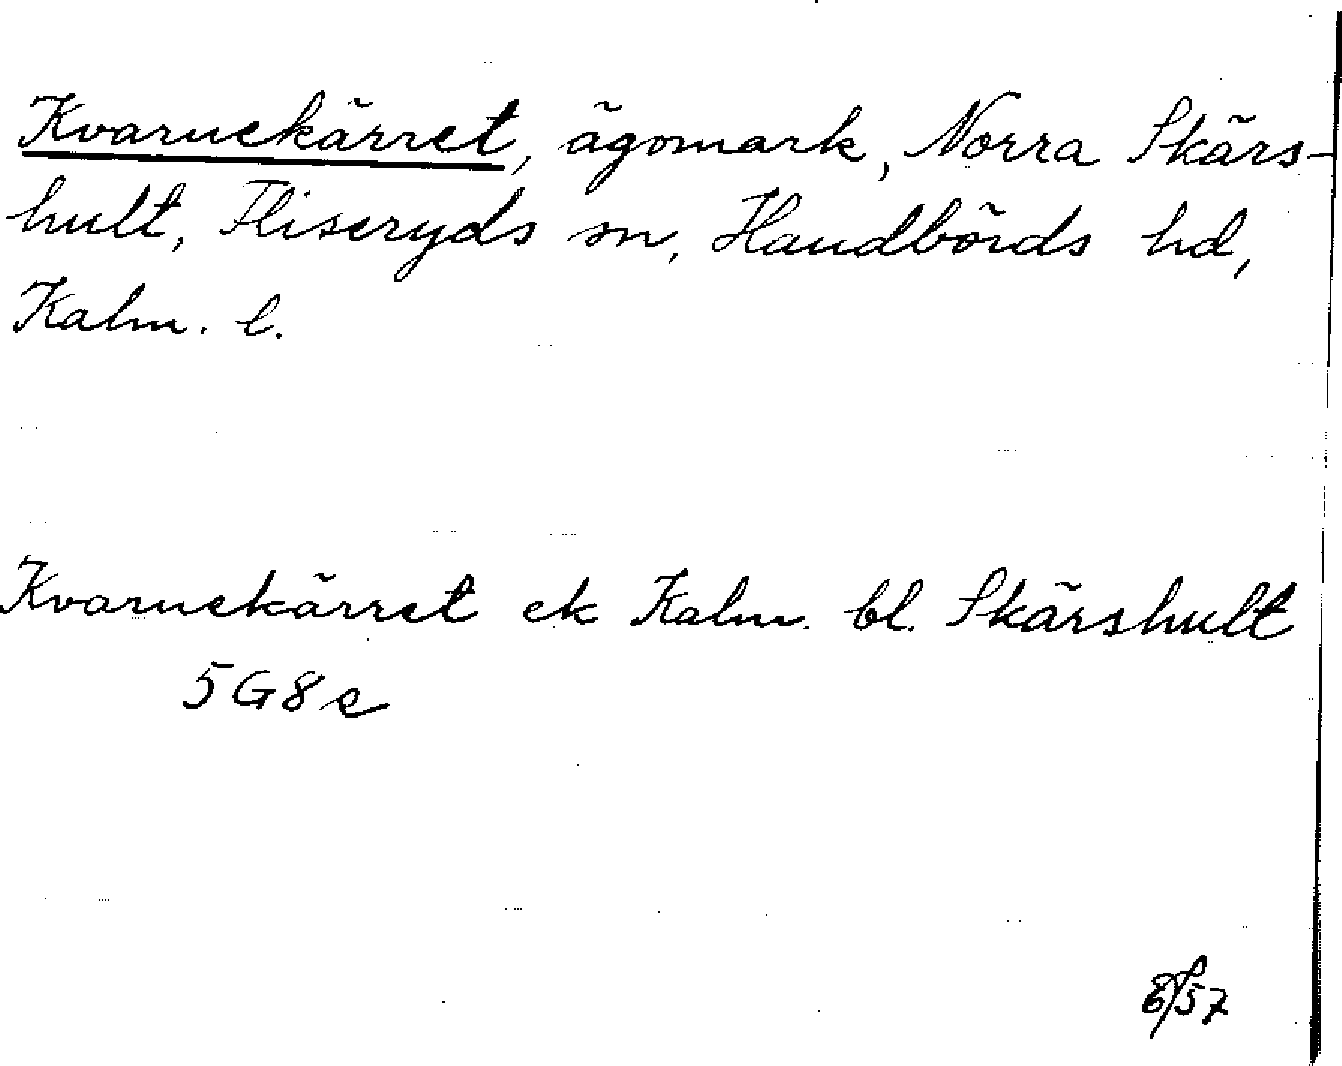 Kvarnekärret, ägomark, Norra Skärs-
hult, Fliseryds sn, Handbörds hd,
Kalm. l.
Kvarnekärret ek Kalm. bl. Skärshult
5G8e